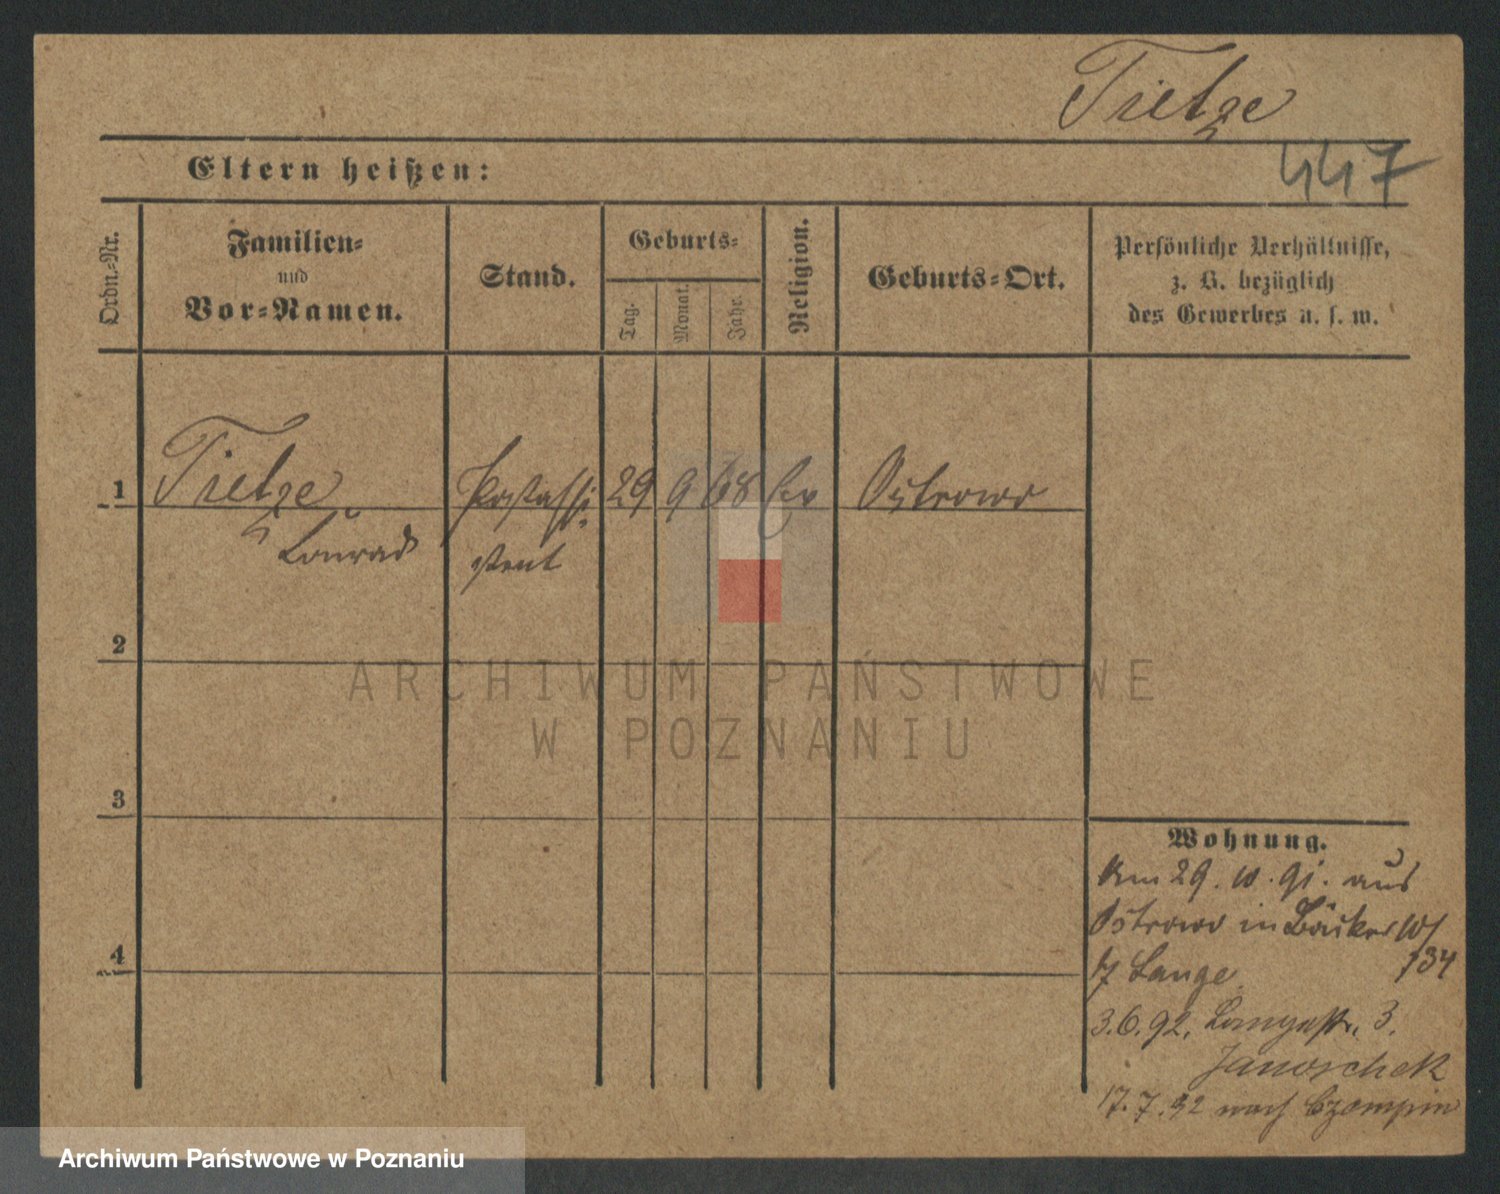 Tietze
447
Eltern heißen:
Ordn.-Nr.
Familien-
und
Vor-Namen.
Stand.
Geburts-
Tag.
Monat.
Jahr.
Religion.
Geburts-Ort.
Persönliche Verhältnisse,
z. B. bezüglich
des Gewerbes u. s. w.
1
Tietze
Conrad
Postassi-
stent
29
9
68
Ev
Ostrowo
2
3
4
Wohnung.
Am 29. 10. 91. aus
Ostrowo in Bäcker
17 Lange
134
3.6.92. Langestr. 3.
Janoschek
17.7.92 nach Czempin
ARCHIWUM PAŃSTWOWE
W POZNANIU
Archiwum Państwowe w Poznaniu